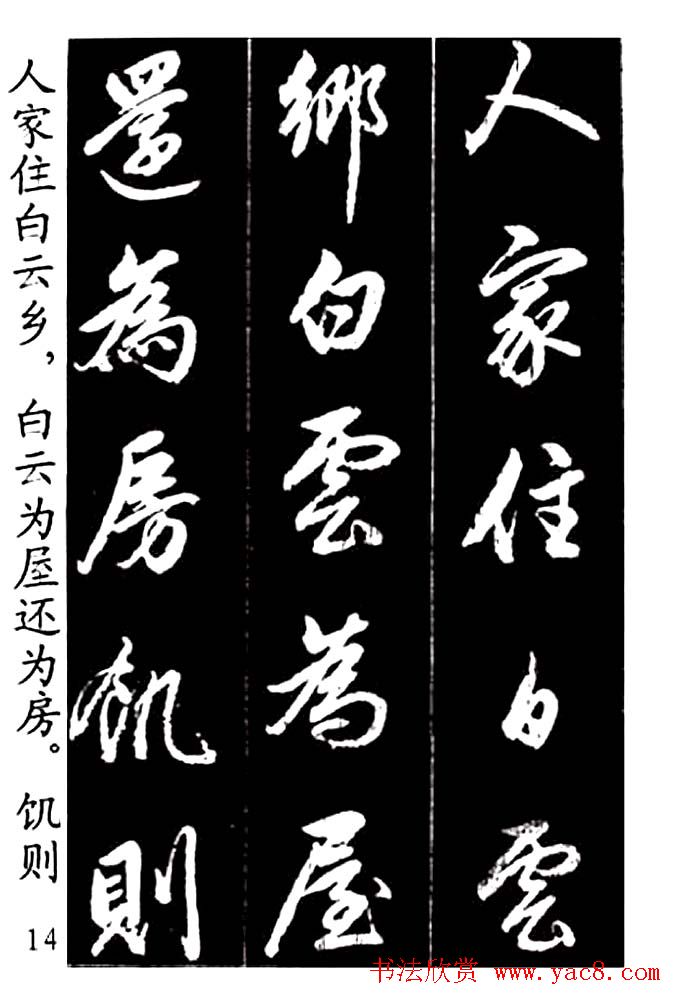 人家住白雲
鄉白雲為屋
還為房飢則
人家住白云乡，白云为屋还为房。饥则
14
书法欣赏 www.yac8.com